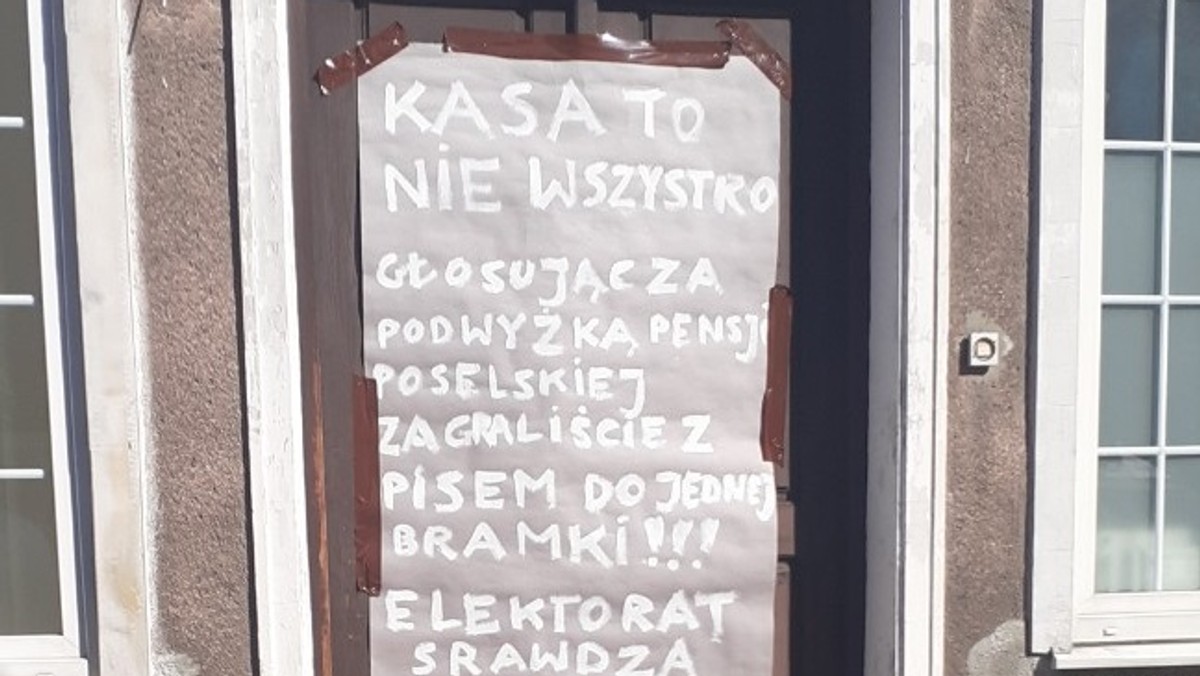 KASA TO
NIE WSZYSTKO
GŁOSUJĄC ZA
PODWYŻKĄ PENSJI
POSELSKIEJ
ZAGRALIŚCIE Z
PISEM DO JEDNEJ
BRAMKI!!!
ELEKTORAT
SRAWDZA